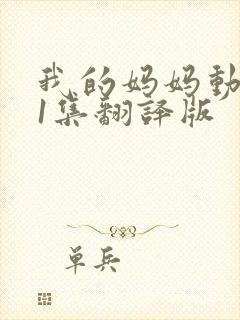 我的妈妈動
1集翻譯版
单兵